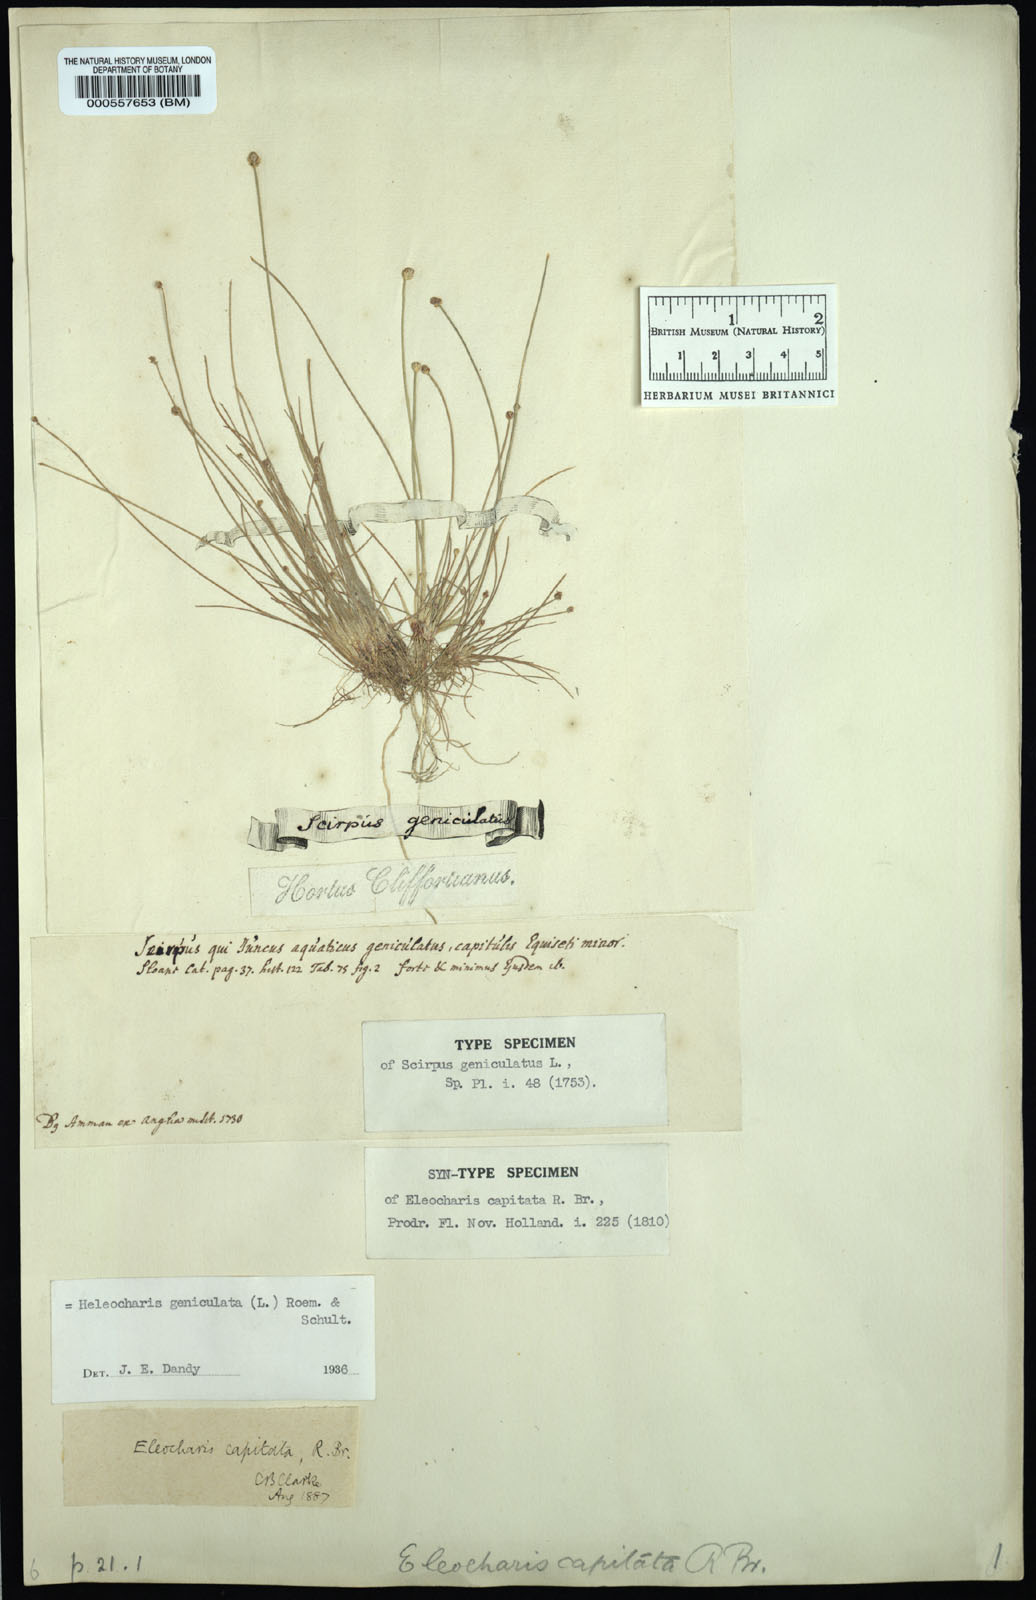 THE NATURAL HISTORY MUSEUM, LONDON
DEPARTMENT OF BOTANY
000557653 (BM)
1 2
BRITISH MUSEUM (NATURAL HISTORY)
1 2 3 4 5
HERBARIUM MUSEI BRITANNICI
Scirpus geniculatus
Hortus Cliffortianus.
Scirpus qui Juncus aquaticus geniculatus, capitulis Equiseti minor.
Sloane Cat. pag. 37. hist. 122 Tab. 75 fig. 2 forte & minimus Ejusdem ib.
TYPE SPECIMEN
of Scirpus geniculatus L.,
Sp. Pl. i. 48 (1753).
Dg Amman ex Anglia misit. 1730
SYN-TYPE SPECIMEN
of Eleocharis capitata R. Br.,
Prodr. Fl. Nov. Holland. i. 225 (1810)
= Heleocharis geniculata (L.) Roem. &
Schult.
DET. J. E. Dandy 1936
Eleocharis capitata, R. Br.
CBClarke
Aug 1887
6 p. 21. 1
Eleocharis capitata R Br.
1